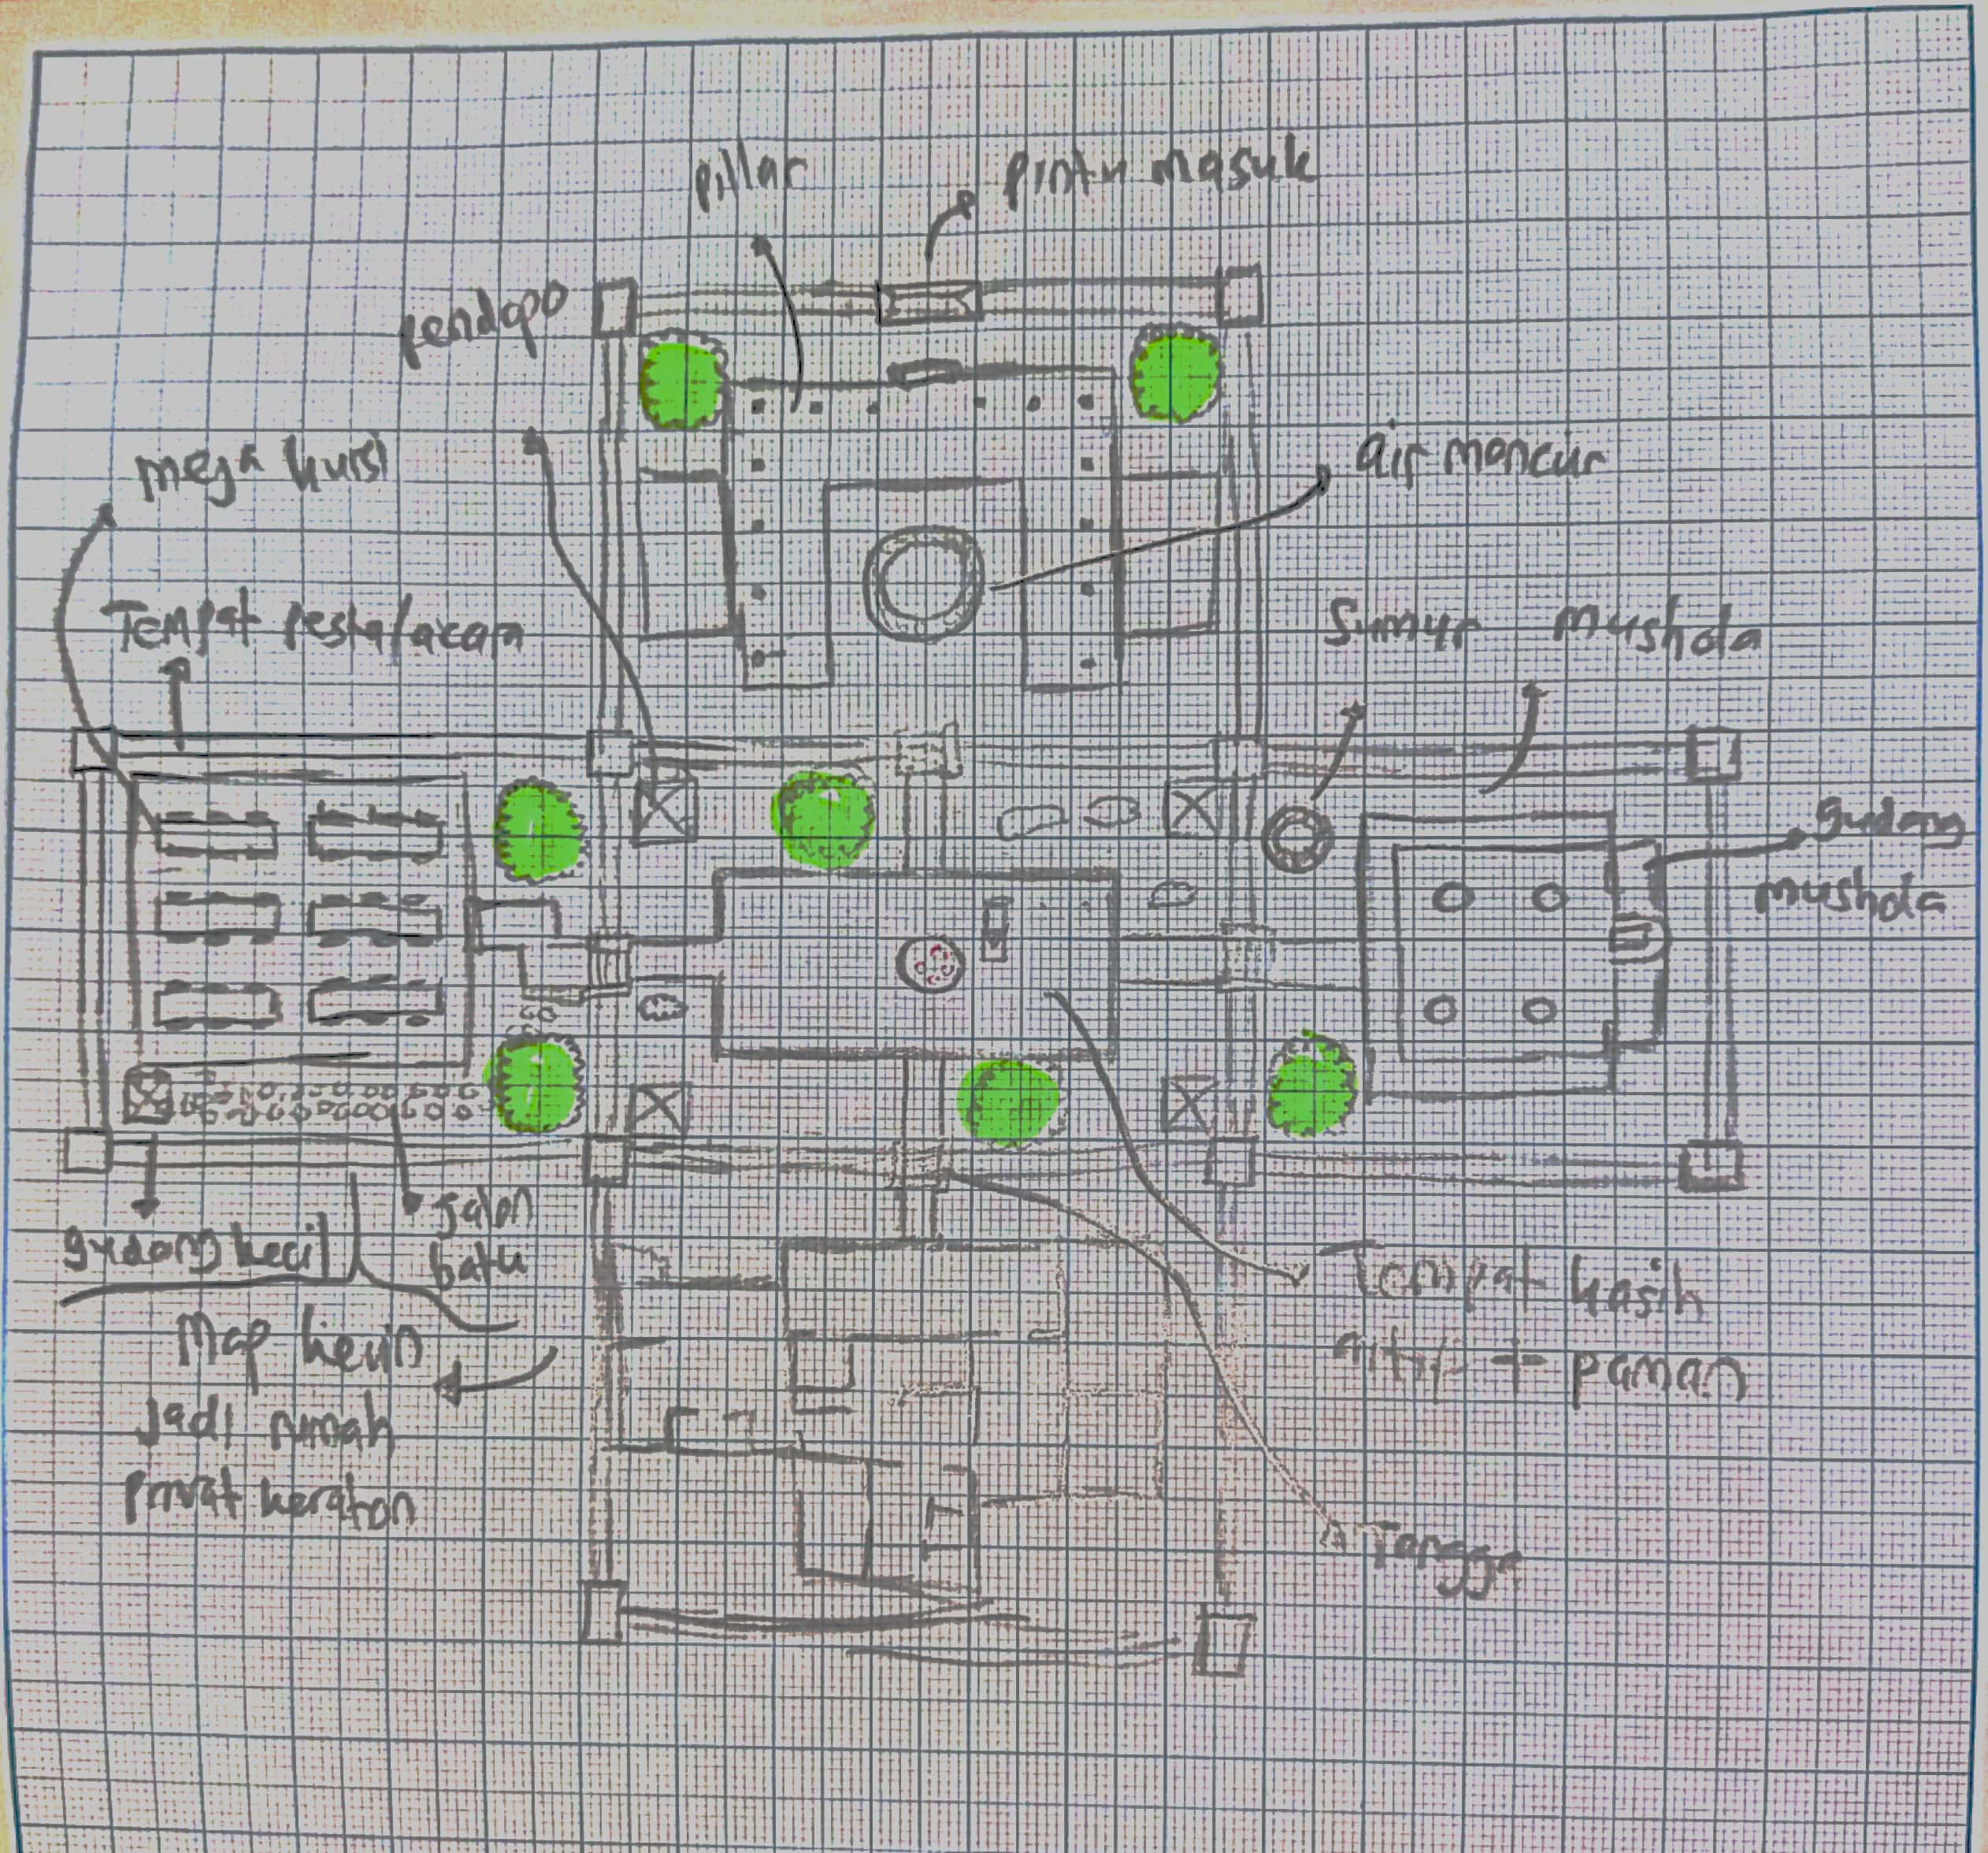 pillar
pintu masuk
pendopo
meja kursi
air moncur
Tempat pesta/acara
Sumur
mushola
gudang
mushola
gudang kecil
jalan
batu
Map kevin
jadi rumah
privat keraton
Tempat kasih
+ paman
Tangga